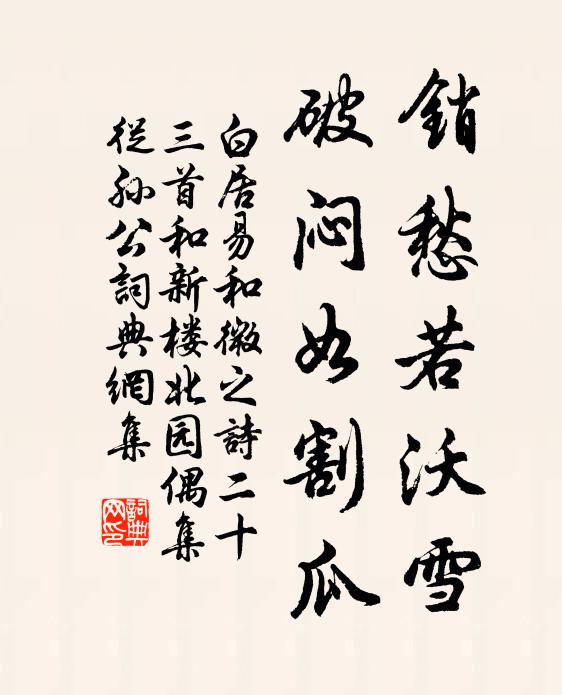 銷愁若沃雪
破闷如割瓜
白居易和微之詩二十
三首和新楼北园偶集
從孙公詞典網集
詞典网印